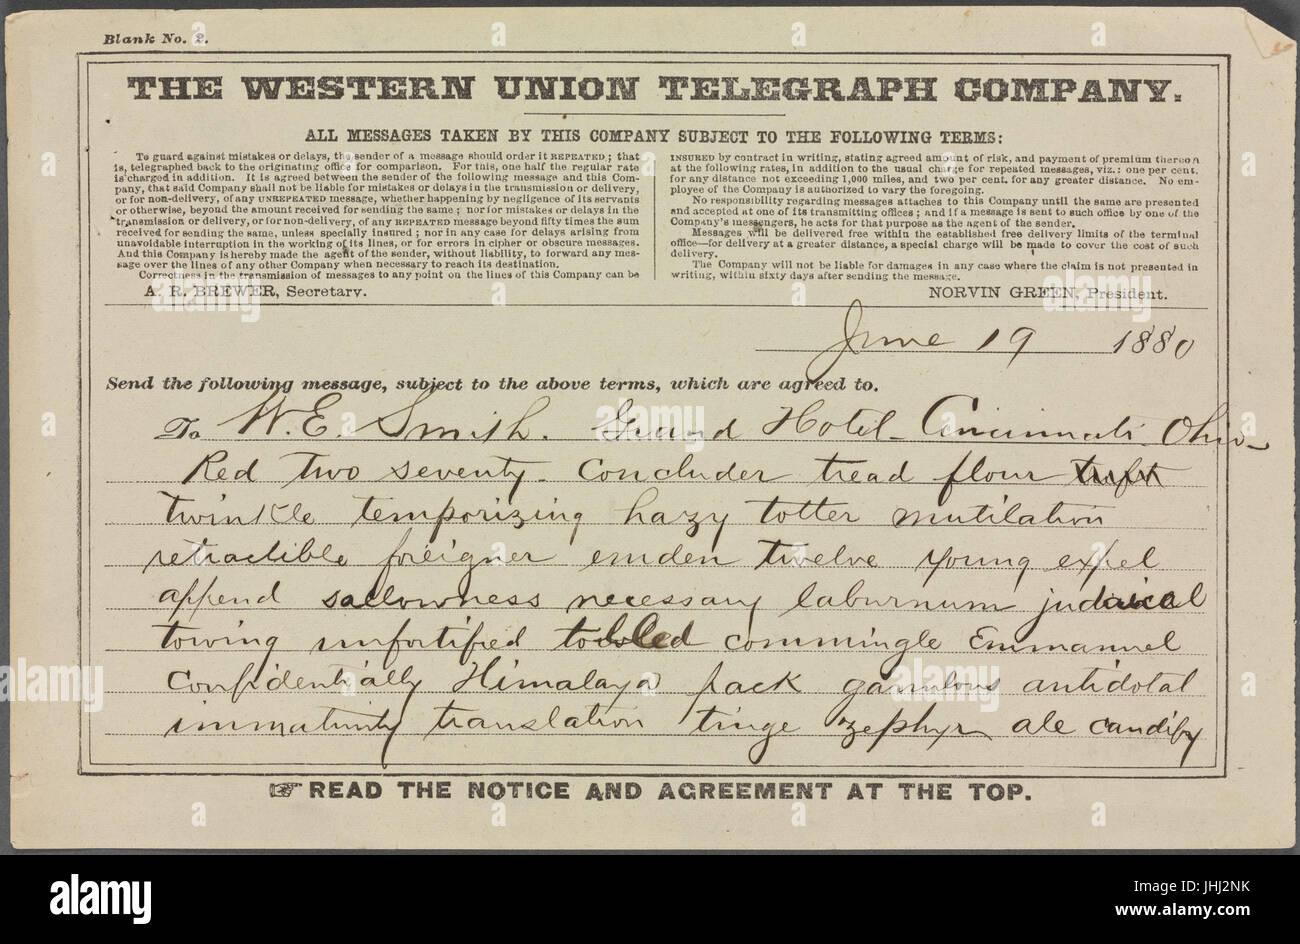 Blank No. 2.
THE WESTERN UNION TELEGRAPH COMPANY.
ALL MESSAGES TAKEN BY THIS COMPANY SUBJECT TO THE FOLLOWING TERMS:
To guard against mistakes or delays, the sender of a message should order it REPEATED; that
is, telegraphed back to the originating office for comparison. For this, one half the regular rate
is charged in addition. It is agreed between the sender of the following message and this Com-
pany, that said Company shall not be liable for mistakes or delays in the transmission or delivery,
or for non-delivery, of any UNREPEATED message, whether happening by negligence of its servants
or otherwise, beyond the amount received for sending the same; nor for mistakes or delays in the
transmission or delivery, or for non-delivery, of any REPEATED message beyond fifty times the sum
received for sending the same, unless specially insured; nor in any case for delays arising from
unavoidable interruption in the working of its lines, or for errors in cipher or obscure messages.
And this Company is hereby made the agent of the sender, without liability, to forward any mes-
sage over the lines of any other Company when necessary to reach its destination.
Correctness in the transmission of messages to any point on the lines of this Company can be
INSURED by contract in writing, stating agreed amount of risk, and payment of premium thereon
at the following rates, in addition to the usual charge for repeated messages, viz.: one per cent.
for any distance not exceeding 1,000 miles, and two per cent. for any greater distance. No em-
ployee of the Company is authorized to vary the foregoing.
No responsibility regarding messages attaches to this Company until the same are presented
and accepted at one of its transmitting offices; and if a message is sent to such office by one of the
Company's messengers, he acts for that purpose as the agent of the sender.
Messages will be delivered free within the established free delivery limits of the terminal
office—for delivery at a greater distance, a special charge will be made to cover the cost of such
delivery.
The Company will not be liable for damages in any case where the claim is not presented in
writing, within sixty days after sending the message.
A. R. BREWER, Secretary.
NORVIN GREEN, President.
June 19 1880
Send the following message, subject to the above terms, which are agreed to.
To W. E. Smith. Grand Hotel - Cincinnati - Ohio -
Red two seventy - Concluder tread flour
twinkle temporizing hazy totter mutilation
retractible foreigner emden twelve young expel
append sallowness necessary laburnum judaical
towing unfortified commingle Emmanuel
Confidentially Himalaya pack garrulous antidotal
immaturity translation tinge zephyr ale candify
☞ READ THE NOTICE AND AGREEMENT AT THE TOP.
alamy
Image ID: JHJ2NK
www.alamy.com